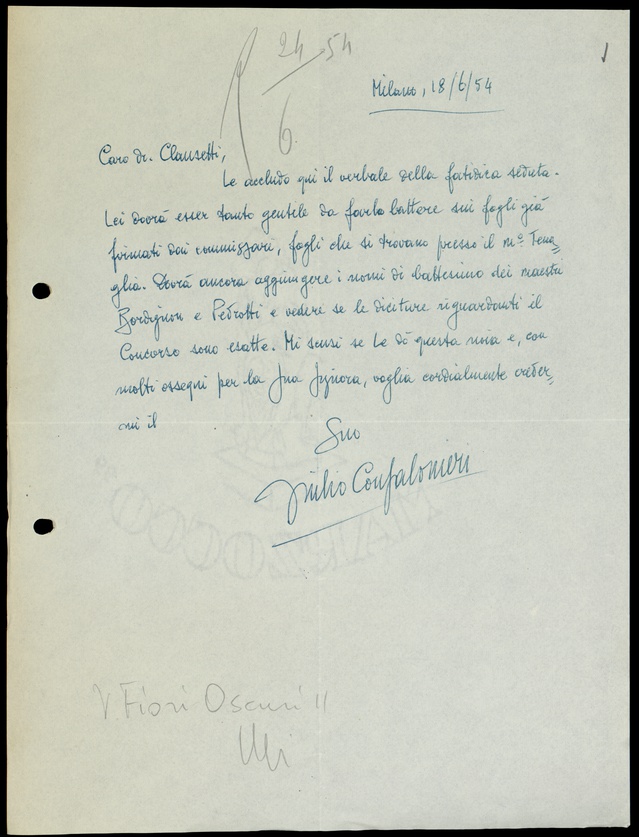 24/54
6.
1
Milano, 18/6/54
Caro dr. Clausetti,
Le accludo qui il verbale della fatidica seduta.
Lei dovrà esser tanto gentile da farlo battere sui fogli già
firmati dai commissari, fogli che si trovano presso il m.o Fena=
glia. Dovrà ancora aggiungere i nomi di battesimo dei maestri
Bordignon e Pedrotti e vedere se le diciture riguardanti il
Concorso sono esatte. Mi scusi se Le dò questa noia e, con
molti ossequi per la Sua Signora, voglia cordialmente creder=
mi il
Suo
Giulio Confalonieri
V. Fiori Oscuri 11
Mi